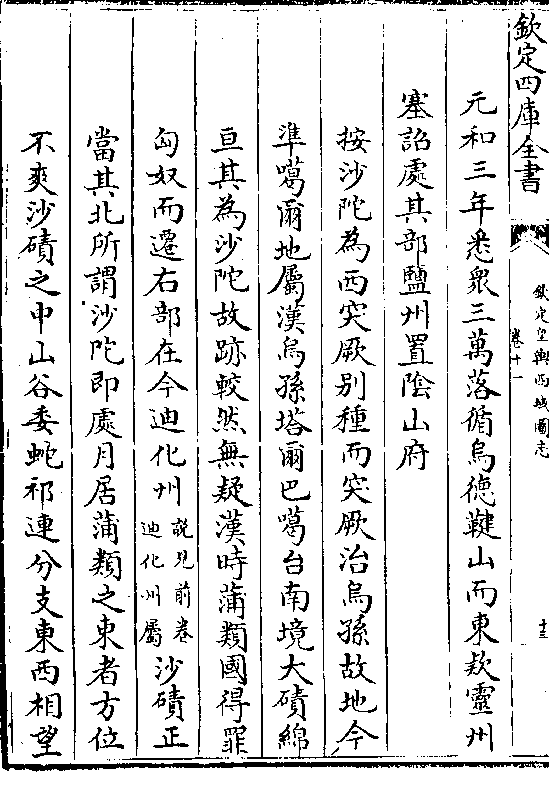 欽定四庫全書
欽定皇輿西域圖志
卷十一
十三
元和三年悉衆三萬落循烏德鞬山而東欵靈州
塞詔處其部鹽州置陰山府
按沙陀為西突厥别種而突厥治烏孫故地今
準噶爾地屬漢烏孫塔爾巴噶台南境大磧綿
亘其為沙陀故跡較然無疑漢時蒲類國得罪
匈奴而遷右部在今迪化州
說見前卷
迪化州屬
沙磧正
當其北所謂沙陀即處月居蒲類之東者方位
不爽沙磧之中山谷委蛇祁連分支東西相望